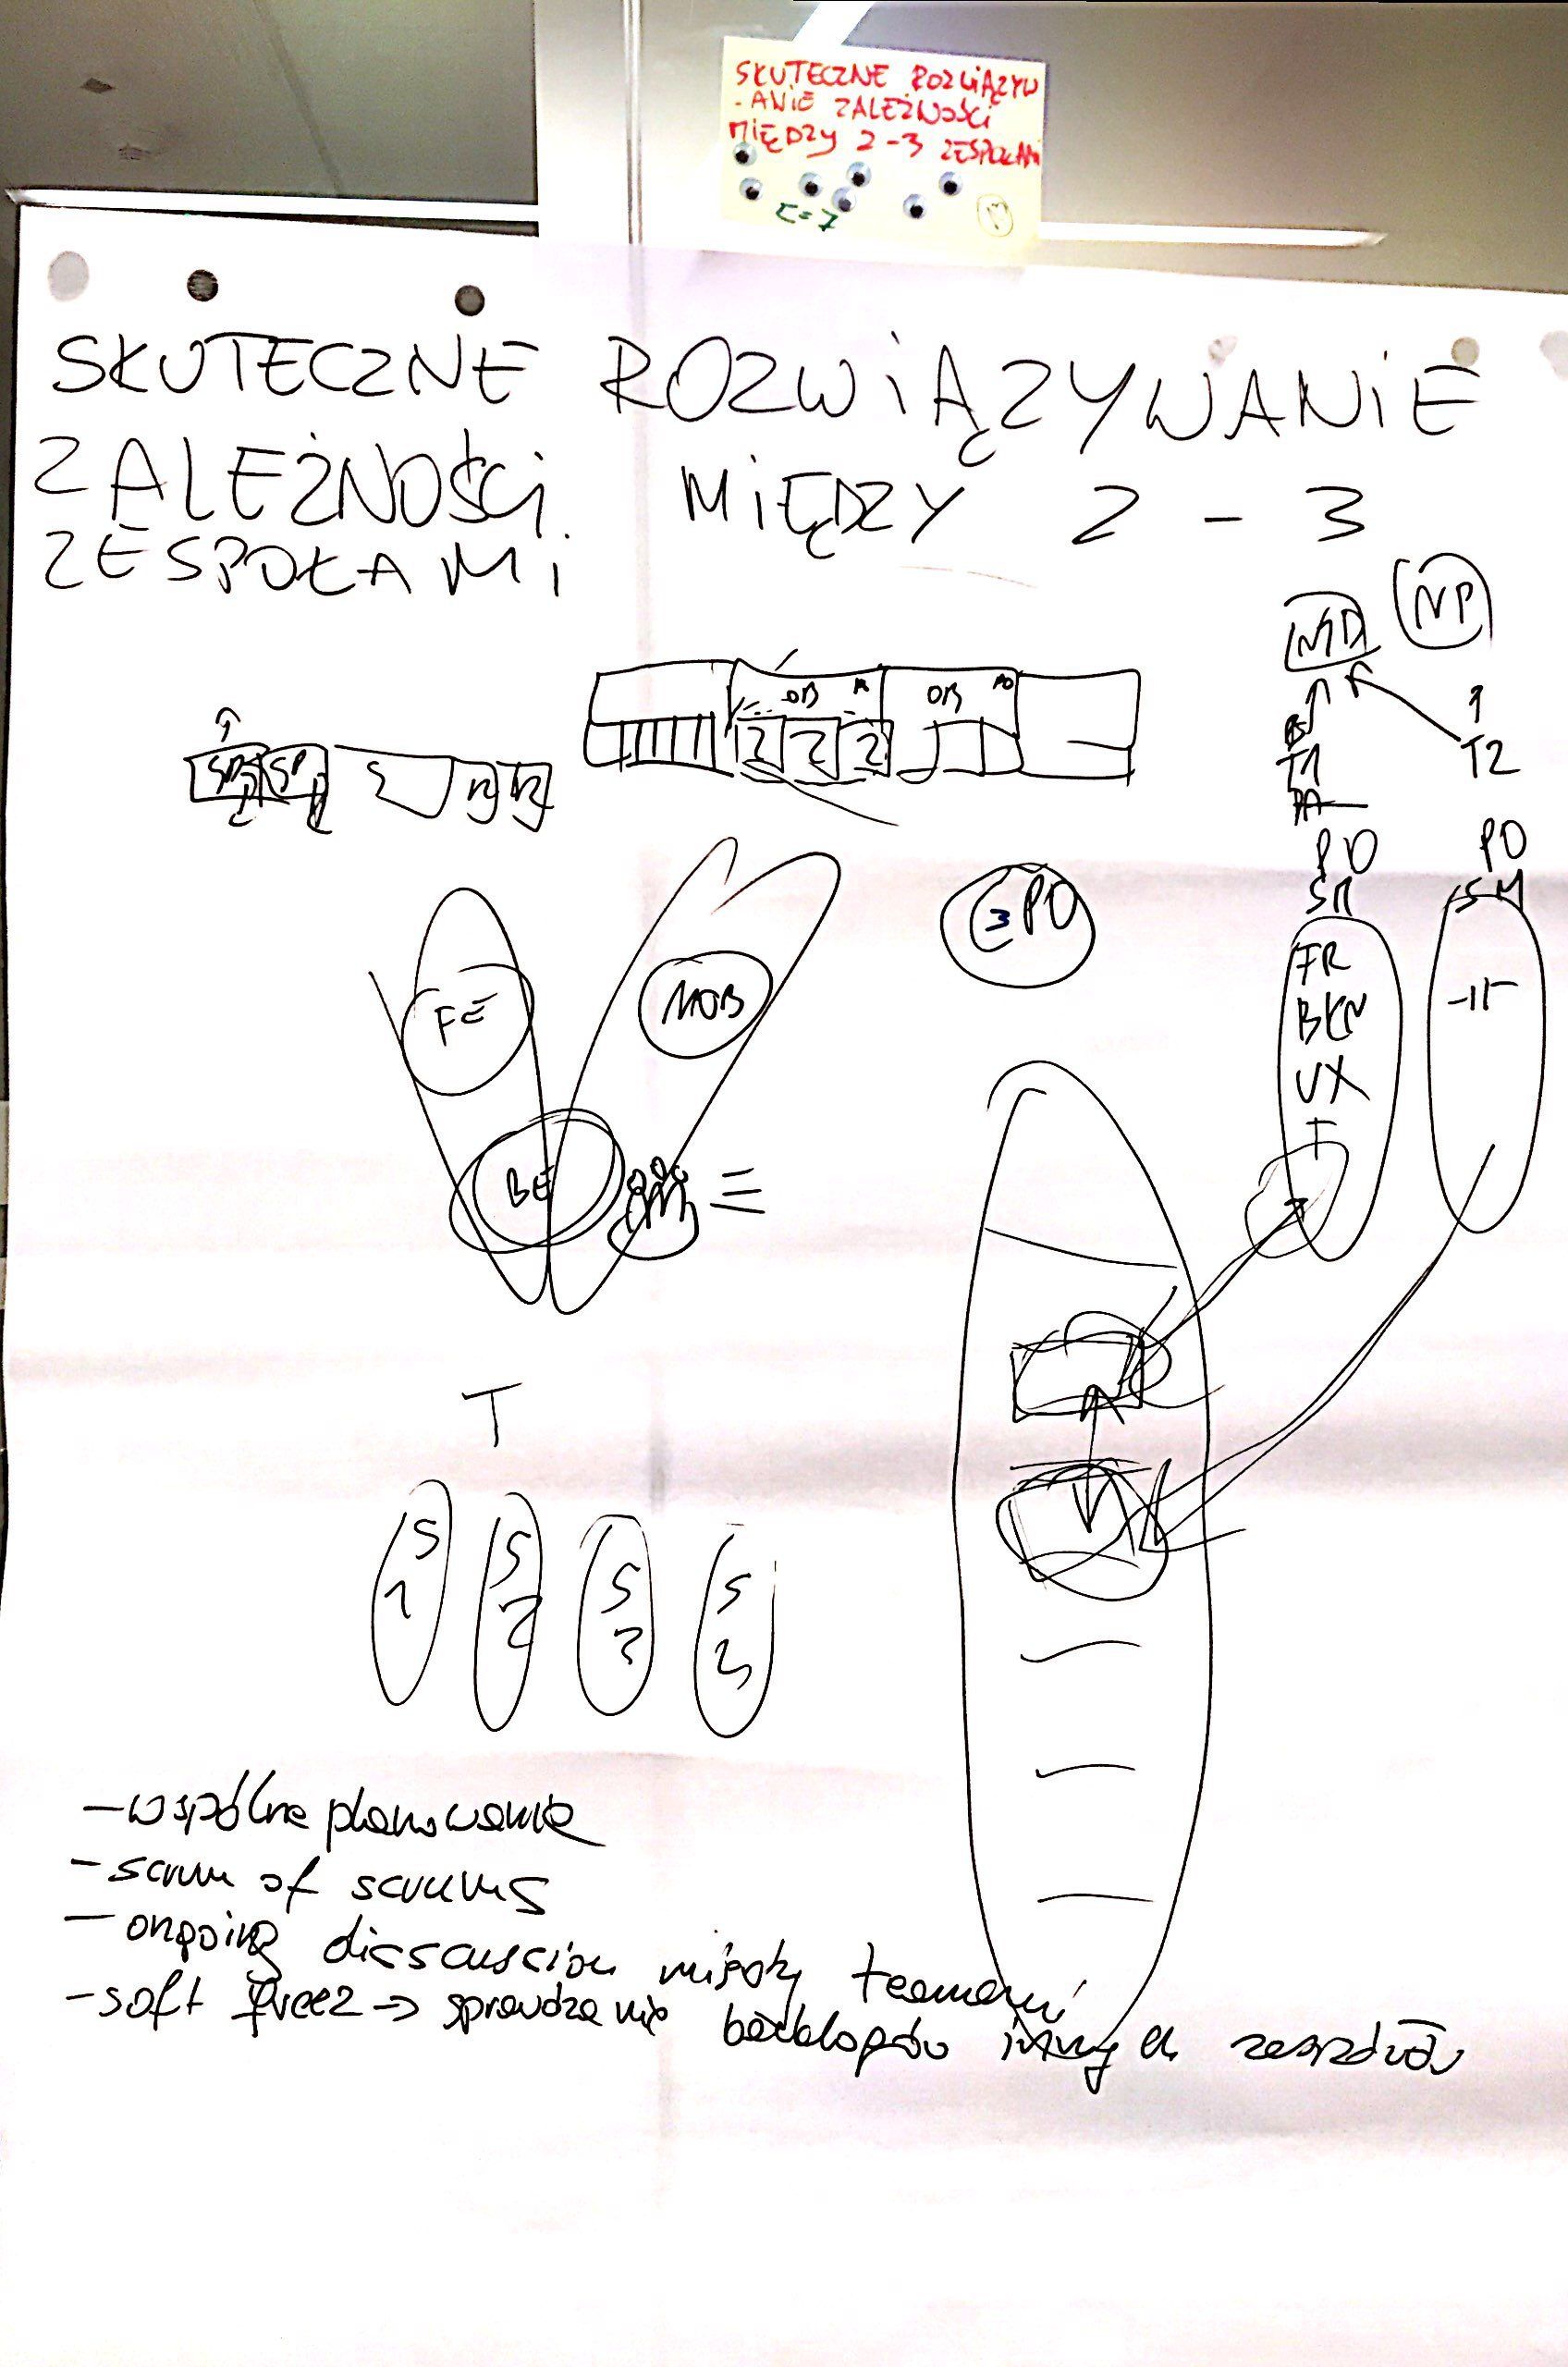 SKUTECZNE ROZWIĄZYW
-ANIE ZALEŻNOŚCI
MIĘDZY 2-3 ZESPOŁAMI
Σ=7
SKUTECZNE ROZWIĄZYWANIE
ZALEŻNOŚCI MIĘDZY 2 - 3
ZESPOŁAMI
NP
T1 T2
PO PO
SM SM
3 PO
FE MOB
BE
FR
BKN
UX
T
T
S S S S
1 2 3
- wspólne planowanie
- scrum of scrums
- ongoing disscuscion między teamami
- soft freez → sprawdzanie backlogów innych zespołów